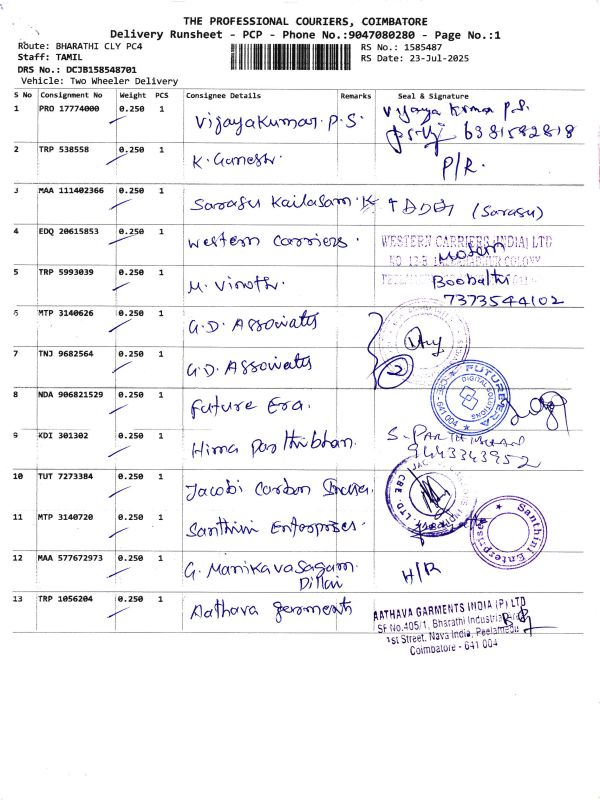 THE PROFESSIONAL COURIERS, COIMBATORE
Delivery Runsheet - PCP - Phone No.:9047080280 - Page No.:1
Route: BHARATHI CLY PC4
RS No.: 1585487
Staff: TAMIL
RS Date: 23-Jul-2025
DRS No.: DCJB158548701
Vehicle: Two Wheeler Delivery
S No Consignment No Weight PCS Consignee Details Remarks Seal & Signature
1 PRO 17774000 0.250 1 Vijayakumar. P.S. Vijaya Kumar P.S.
6381582818
2 TRP 538558 0.250 1 K. Ganesh. P/R.
3 MAA 111402366 0.250 1 Sarasu Kailasam. K (Sarasu)
4 EDQ 20615853 0.250 1 Western Carriers. WESTERN CARRIERS (INDIA) LTD
5 TRP 5993039 0.250 1 M. Vinoth. Boobalhi
7373544102
6 MTP 3140626 0.250 1 G.D. Associates
7 TNJ 9682564 0.250 1 G.D. Associates 2
8 NDA 906821529 0.250 1 Future Era. FUTURE ERA DIGITAL SOLUTIONS CBE - 641 004
9 KDI 301302 0.250 1 Hima Parthibhan. S. PARTHIBHAN
9443343952
10 TUT 7273384 0.250 1 Jacobi Carbon India.
11 MTP 3140720 0.250 1 Santhini Enterprises. Santhini Enterprises
12 MAA 577672973 0.250 1 G. Manikavasagam. H/R
Pillai
13 TRP 1056204 0.250 1 Aathava garments AATHAVA GARMENTS INDIA (P) LTD
SF No.405/1, Bharathi Industrial
1st Street, Nava India, Peelamedu
Coimbatore - 641 004